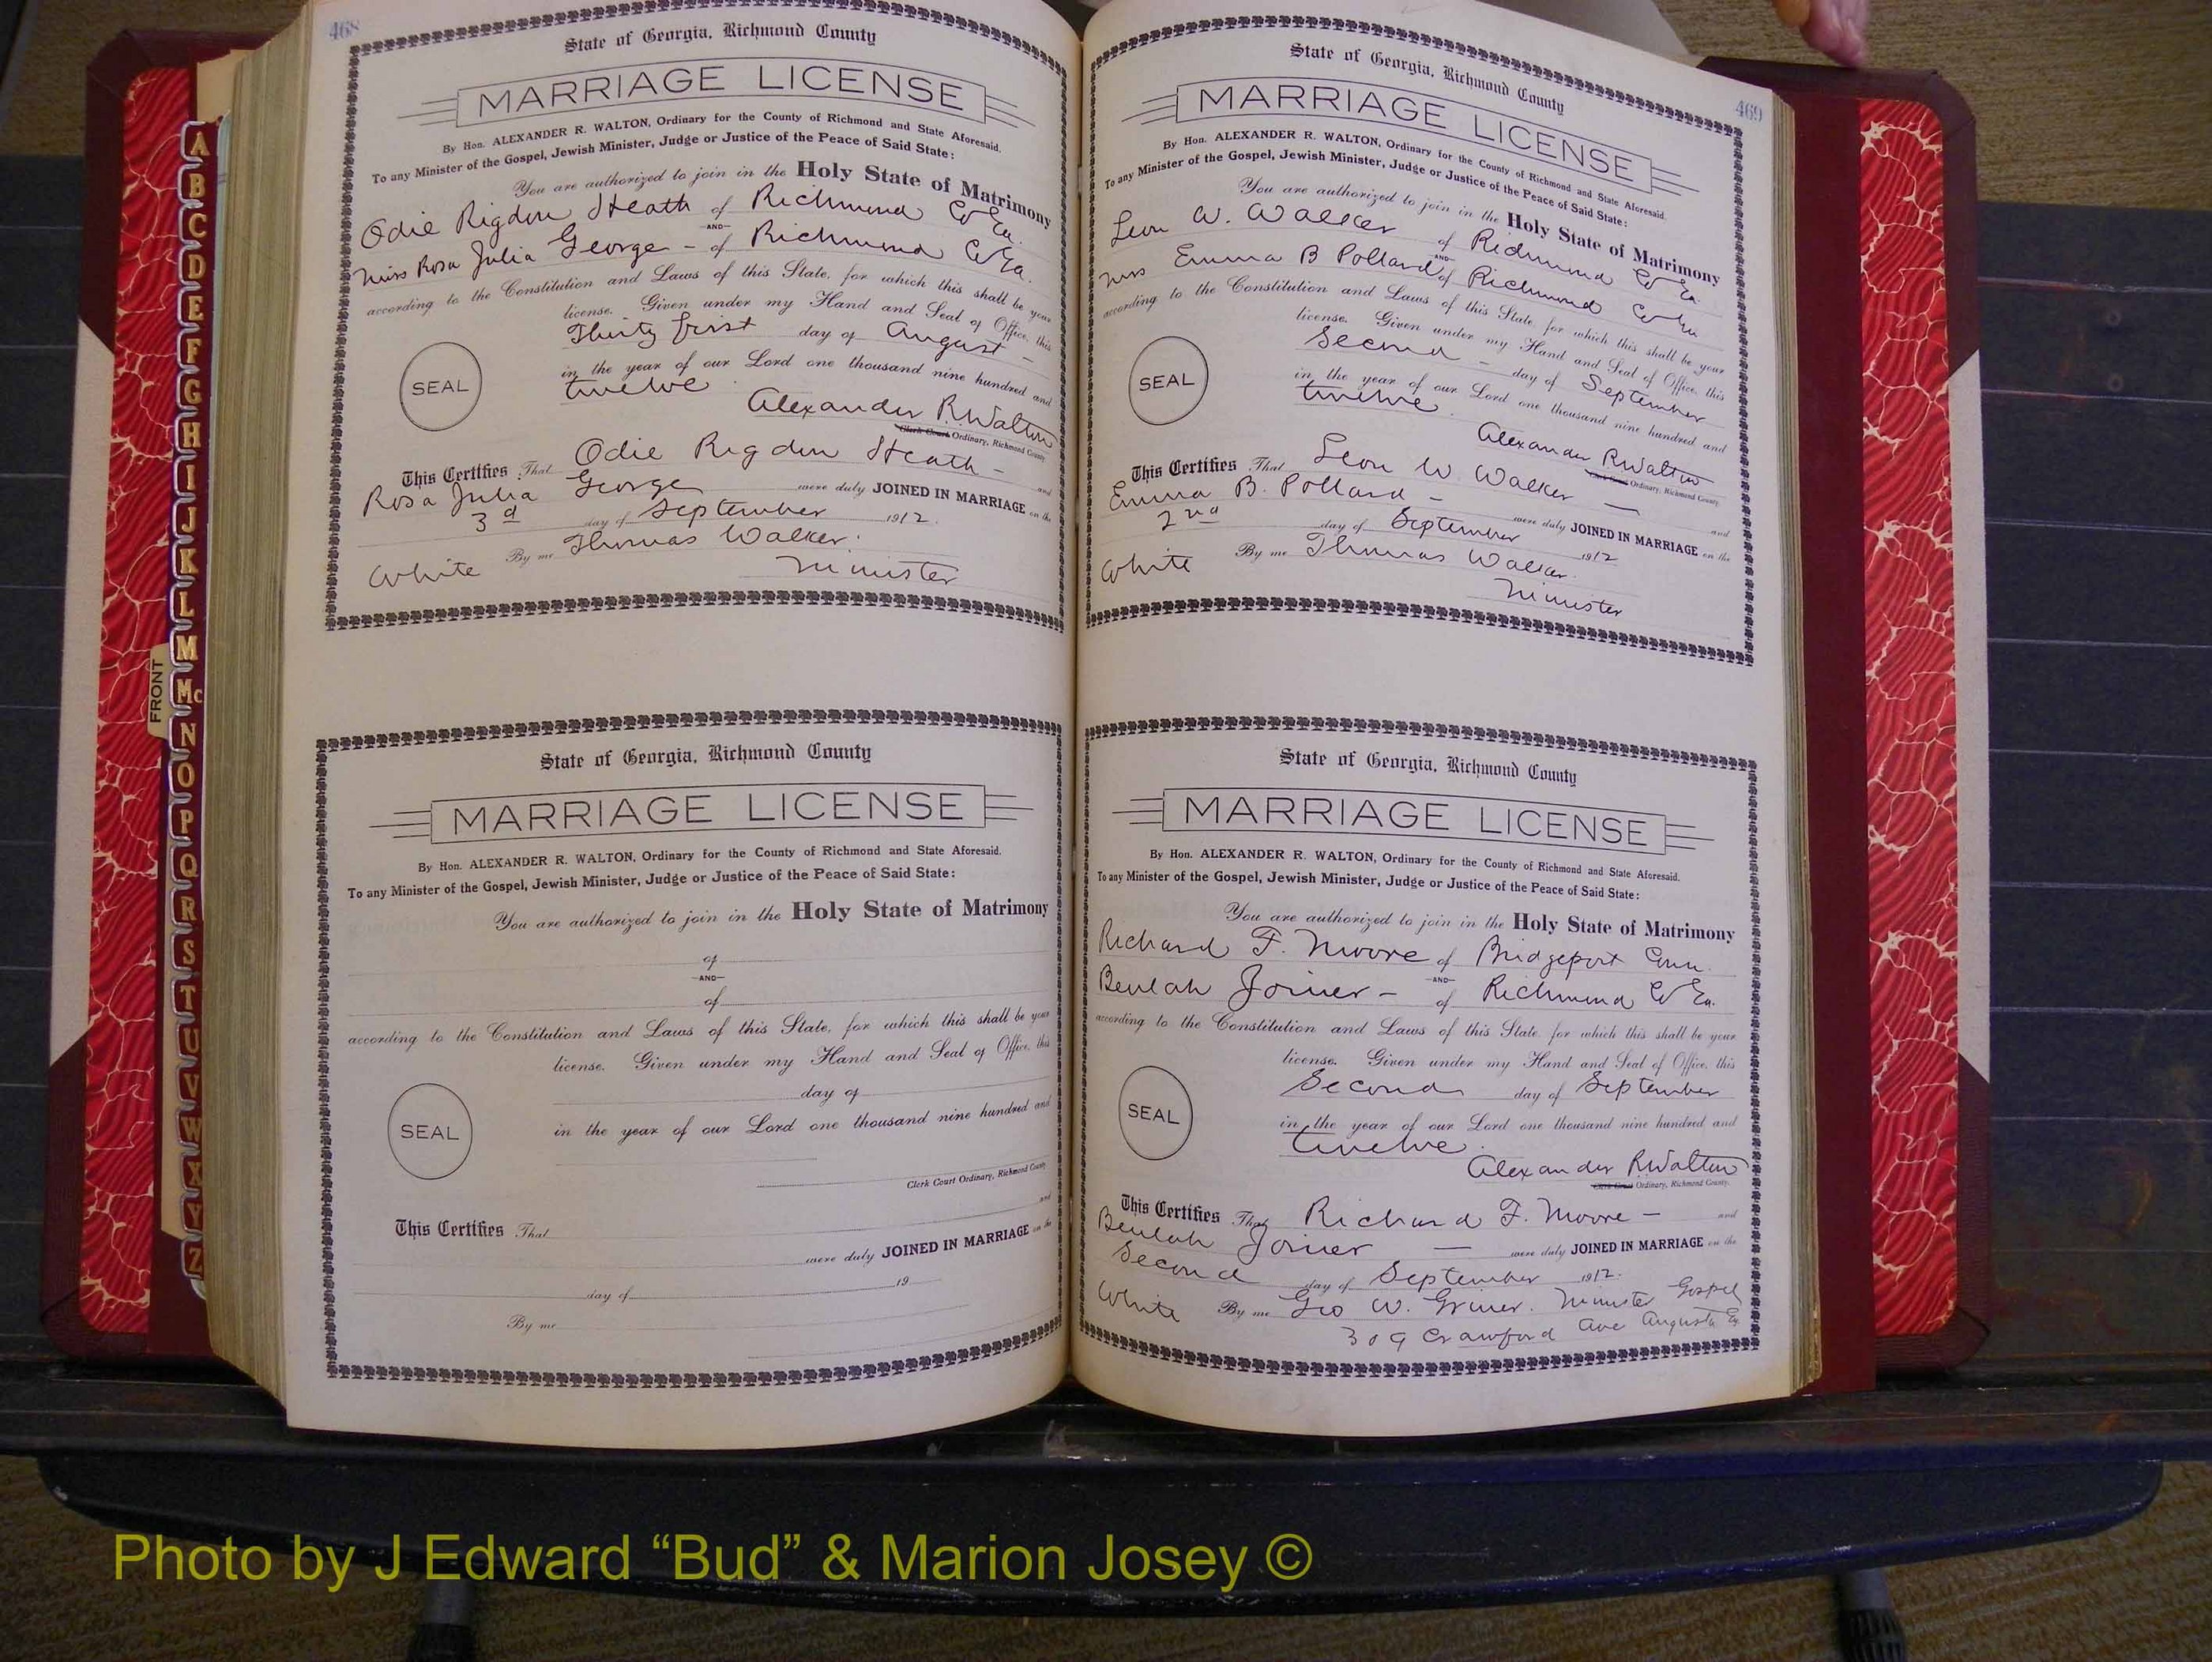 468
State of Georgia, Richmond County
MARRIAGE LICENSE
By Hon. ALEXANDER R. WALTON, Ordinary for the County of Richmond and State Aforesaid.
To any Minister of the Gospel, Jewish Minister, Judge or Justice of the Peace of Said State:
You are authorized to join in the Holy State of Matrimony
Odie Rigdon Heath of Richmond Co Ga.
AND
Miss Rosa Julia George - of Richmond Co Ga.
according to the Constitution and Laws of this State, for which this shall be your
license. Given under my Hand and Seal of Office, this
Thirty first day of August -
in the year of our Lord one thousand nine hundred and
twelve
SEAL
Alexander R. Walton
Clerk Court Ordinary, Richmond County
This Certifies That Odie Rigdon Heath - and
Rosa Julia George were duly JOINED IN MARRIAGE on the
3d day of September 1912.
White By me Thomas Walker.
Minister
State of Georgia, Richmond County
MARRIAGE LICENSE
By Hon. ALEXANDER R. WALTON, Ordinary for the County of Richmond and State Aforesaid.
To any Minister of the Gospel, Jewish Minister, Judge or Justice of the Peace of Said State:
You are authorized to join in the Holy State of Matrimony
of
AND
of
according to the Constitution and Laws of this State, for which this shall be your
license. Given under my Hand and Seal of Office, this
day of
in the year of our Lord one thousand nine hundred and
SEAL
Clerk Court Ordinary, Richmond County
This Certifies That and
were duly JOINED IN MARRIAGE on the
day of 19
By me
469
State of Georgia, Richmond County
MARRIAGE LICENSE
By Hon. ALEXANDER R. WALTON, Ordinary for the County of Richmond and State Aforesaid.
To any Minister of the Gospel, Jewish Minister, Judge or Justice of the Peace of Said State:
You are authorized to join in the Holy State of Matrimony
Leon W. Walker of Richmond Co Ga.
AND
Miss Emma B Pollard of Richmond Co Ga
according to the Constitution and Laws of this State, for which this shall be your
license. Given under my Hand and Seal of Office, this
Second - day of September
in the year of our Lord one thousand nine hundred and
twelve.
SEAL
Alexander R Walton
Clerk Court Ordinary, Richmond County
This Certifies That Leon W. Walker - and
Emma B. Pollard - were duly JOINED IN MARRIAGE on the
2nd day of September 1912
White By me Thomas Walker.
Minister
State of Georgia, Richmond County
MARRIAGE LICENSE
By Hon. ALEXANDER R. WALTON, Ordinary for the County of Richmond and State Aforesaid.
To any Minister of the Gospel, Jewish Minister, Judge or Justice of the Peace of Said State:
You are authorized to join in the Holy State of Matrimony
Richard F. Moore of Bridgeport Conn.
AND
Beulah Joiner - of Richmond Co Ga.
according to the Constitution and Laws of this State, for which this shall be your
license. Given under my Hand and Seal of Office, this
Second day of September
in the year of our Lord one thousand nine hundred and
twelve.
SEAL
Alexander R Walton
Clerk Court Ordinary, Richmond County.
This Certifies That Richard F. Moore - and
Beulah Joiner - were duly JOINED IN MARRIAGE on the
Second day of September 1912.
White By me Geo W. Griner. Minister Gospel
309 Crawford Ave Augusta Ga
A
B
C
D
E
F
G
H
I
J
K
L
M
Mc
N
O
P
Q
R
S
T
U
V
W
X
Y
Z
FRONT
Photo by J Edward “Bud” & Marion Josey ©